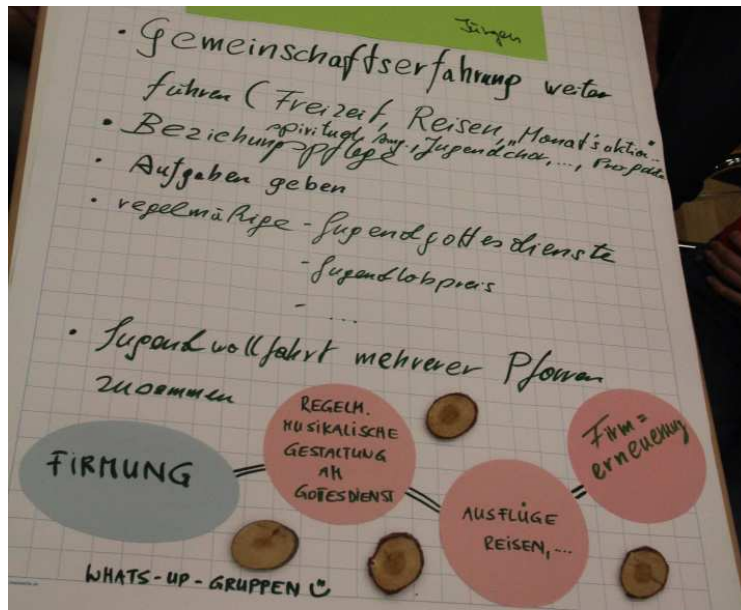 Jürgen
• Gemeinschaftserfahrung weiter
führen (Freizeit, Reisen, "Monatsaktion"..
spirituel, Jugendchor, ...,
• Beziehungspflege
• Aufgaben geben
• regelmäßige - Jugendgottesdienste
- Jugendlobpreis
- ....
• Jugendwallfahrt mehrerer Pfarren
zusammen
FIRMUNG
REGELM.
MUSIKALISCHE
GESTALTUNG
AM
GOTESDIENST
AUSFLÜGE
REISEN,...
Firm=
erneuerung
WHATS-UP-GRUPPEN